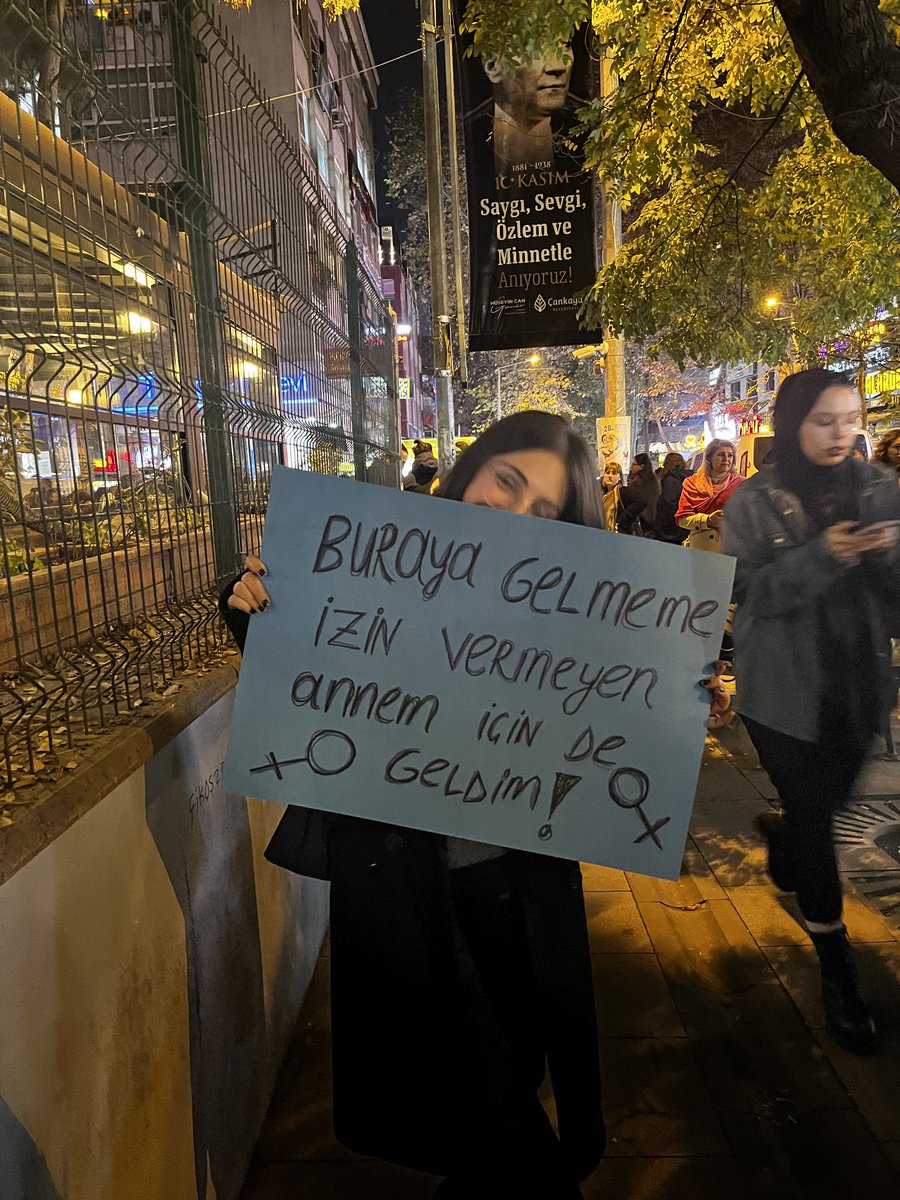 1881 - 1938
10 KASIM
Saygı, Sevgi,
Özlem ve
Minnetle
Anıyoruz!
HÜSEYİN CAN
Güner
Çankaya
BELEDİYESİ
evi
BURAYA GELMEME
İZİN VERMEYEN
annem İÇİN DE
GELDİM!